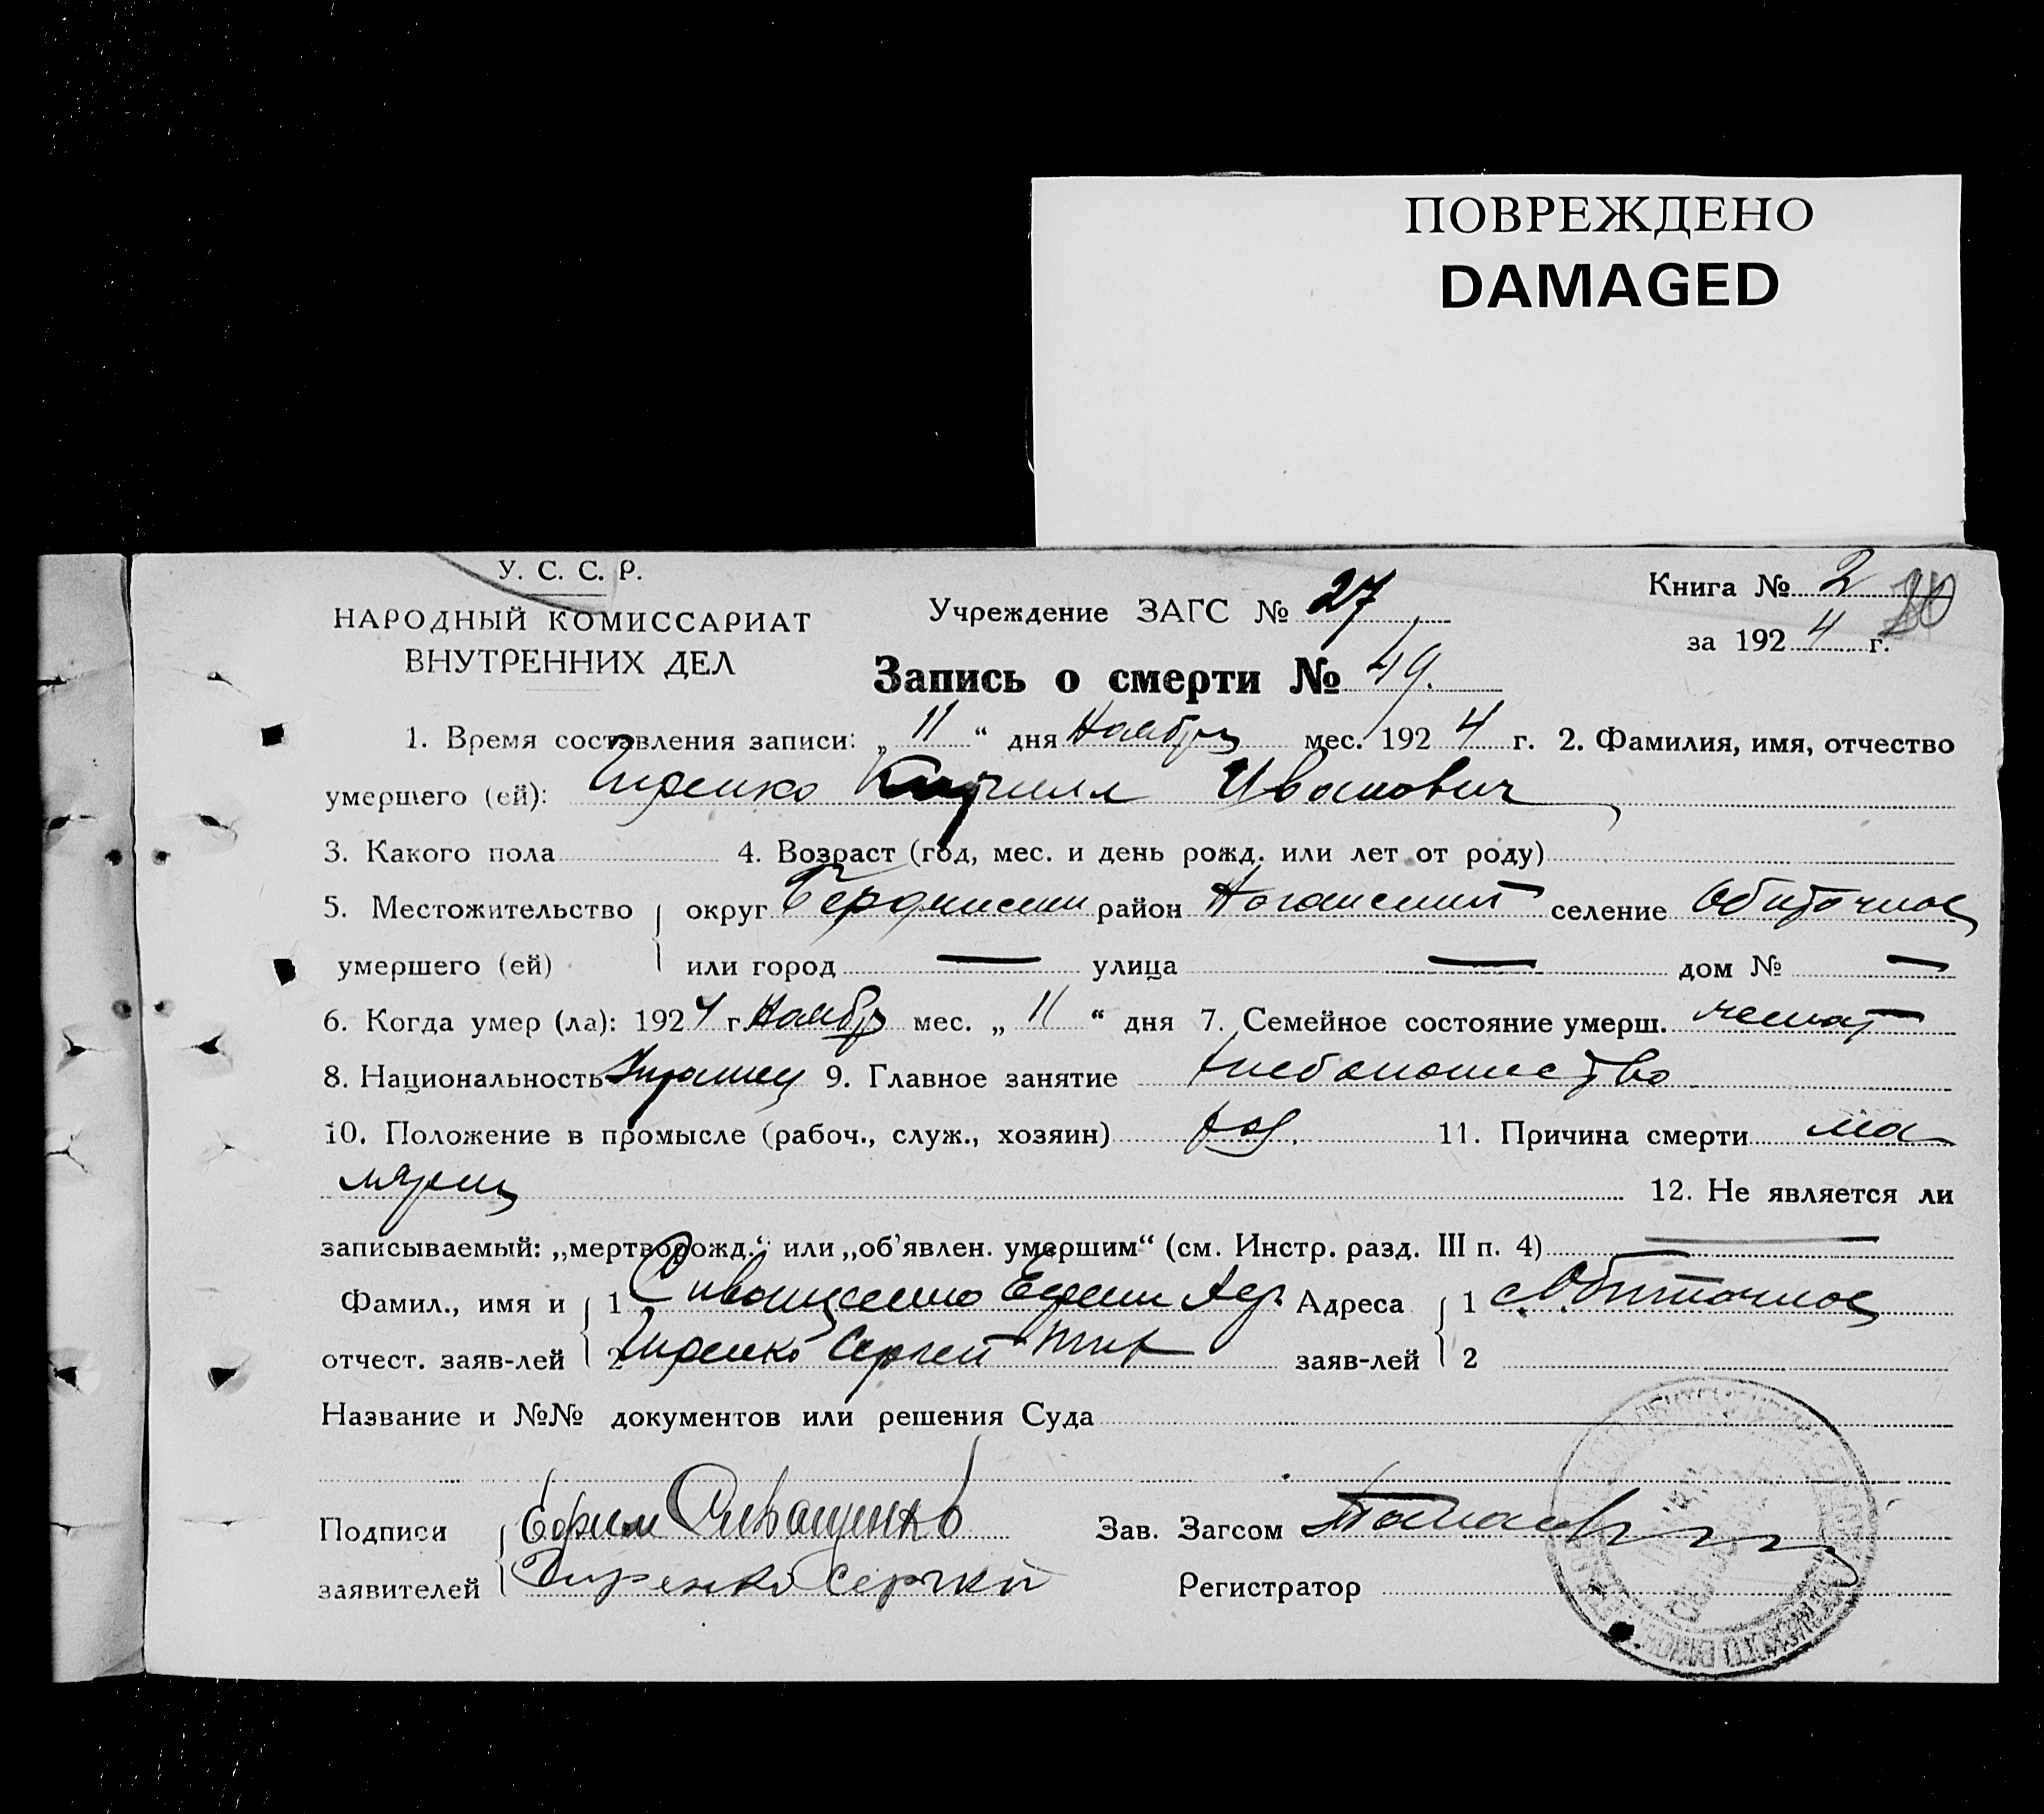 ПОВРЕЖДЕНО
DAMAGED
У. С. С. Р.
НАРОДНЫЙ КОМИССАРИАТ
ВНУТРЕННИХ ДЕЛ
Учреждение ЗАГС № 27
Книга № 2
за 1924 г.
Запись о смерти № 49.
1. Время составления записи: „11“ дня Ноября мес. 1924 г. 2. Фамилия, имя, отчество
умершего (ей): Кирилл Иванович
3. Какого пола 4. Возраст (год, мес. и день рожд. или лет от роду)
5. Местожительство умершего (ей) округ Бердянский район Ногайский селение Обиточное
или город — улица — дом № —
6. Когда умер (ла): 1924 г. Ноябр мес. „11“ дня 7. Семейное состояние умерш. женат
8. Национальность Украинец 9. Главное занятие хлебопашество
10. Положение в промысле (рабоч., служ., хозяин) 11. Причина смерти ма
лярия 12. Не является ли
записываемый: „мертворожд.“ или „об'явлен. умершим“ (см. Инстр. разд. III п. 4) —
Фамил., имя и отчест. заяв-лей 1 Сиващенко Ефим Адреса заяв-лей 1 с. Обиточное
2 Сергей 2
Название и №№ документов или решения Суда
Подписи заявителей Ефим Сиващенко Зав. Загсом
Сергей Регистратор